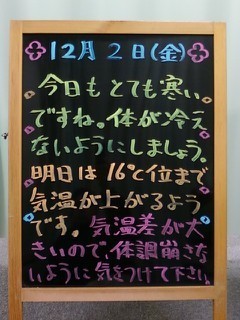 12月2日(金)
今日もとても寒い
ですね。体が冷え
ないようにしましょう。
明日は16℃位まで
気温が上がるよう
です。気温差が大
きいので、体調崩さな
いように気をつけて下さい。